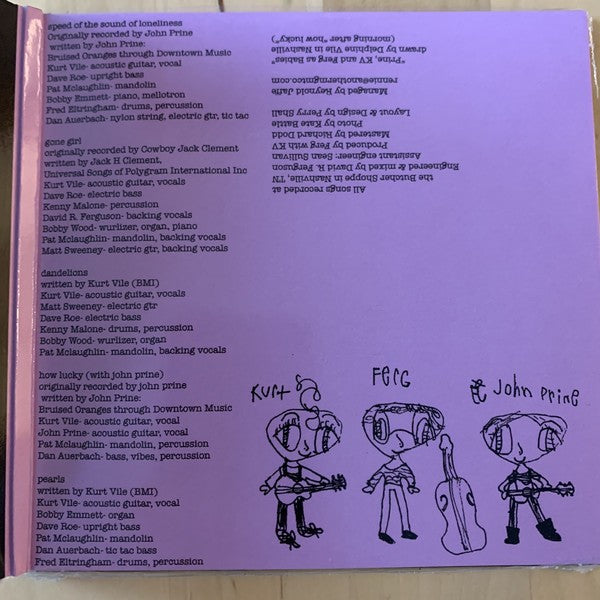 speed of the sound of loneliness
Originally recorded by John Prine
written by John Prine:
Bruised Oranges through Downtown Music
Kurt Vile- acoustic guitar, vocal
Dave Roe- upright bass
Pat Mclaughlin- mandolin
Bobby Emmett- piano, mellotron
Fred Eltringham- drums, percussion
Dan Auerbach- nylon string, electric gtr, tic tac
gone girl
originally recorded by Cowboy Jack Clement
written by Jack H Clement,
Universal Songs of Polygram International Inc
Kurt Vile- acoustic guitar, vocals
Dave Roe- electric bass
Kenny Malone- percussion
David R. Ferguson- backing vocals
Bobby Wood- wurlizer, organ, piano
Pat Mclaughlin- mandolin, backing vocals
Matt Sweeney- electric gtr, backing vocals
dandelions
written by Kurt Vile (BMI)
Kurt Vile- acoustic guitar, vocals
Matt Sweeney- electric gtr
Dave Roe- electric bass
Kenny Malone- drums, percussion
Bobby Wood- wurlizer, organ
Pat Mclaughlin- mandolin, backing vocals
how lucky (with john prine)
originally recorded by john prine
written by John Prine:
Bruised Oranges through Downtown Music
Kurt Vile- acoustic guitar, vocal
John Prine- acoustic guitar, vocal
Pat Mclaughlin- mandolin, percussion
Dan Auerbach- bass, vibes, percussion
pearls
written by Kurt Vile (BMI)
Kurt Vile- acoustic guitar, vocal
Bobby Emmett- organ
Dave Roe- upright bass
Pat Mclaughlin- mandolin
Dan Auerbach- tic tac bass
Fred Eltringham- drums, percussion
All songs recorded at
the Butcher Shoppe in Nashville, TN,
Engineered & mixed by David R. Ferguson
Assistant engineer: Sean Sullivan
Produced by Ferg with KV
Mastered by Richard Dodd
Photo by Kate Battle
Layout & Design by Perry Shall
Managed by Reynold Jaffe
rennie@anothermgmtco.com
"Prine, KV and Ferg as Babies"
drawn by Delphine Vile in Nashville
(morning after "how lucky")
Kurt
Ferg
& John Prine